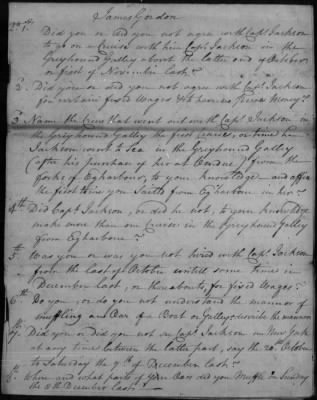 James Gordon
Did you or did you not agree with Capt Jackson
to go on a Cruise with him Capt Jackson in the
Greyhound Galley about the latter end of October
or first of November last
2 Did you or did you not agree with Capt Jackson
for certain fixed Wages & to have no Prize Money
3 Name the Crew that went out with Capt Jackson in
the Greyhound Galley the first Cruise, or time
Jackson went to Sea in the Greyhound Galley
(after his purchase of her at vendue) from the
forks of Eggharbour, to your knowledge and
the first time you Sailed from Eggharbour in her
4th Did Capt Jackson, or did he not, to your knowledge
make more than one Cruise in the Greyhound Galley
from Eggharbour
5th Was you or was you not hired with Capt Jackson
from the last of October untill some time in
December last, or thereabouts, for fixed Wages
6th Do you, or do you not understand the manner of
muffling an Oar of a Boat or Galley, describe the manner
7th Did you or Did you not see Capt Jackson in New York
at any time between the latter part, say the 20th October
to Saturday the 7th of December last
8th When and what parts of your Oars did you Muffle on Sunday
the 8th December last